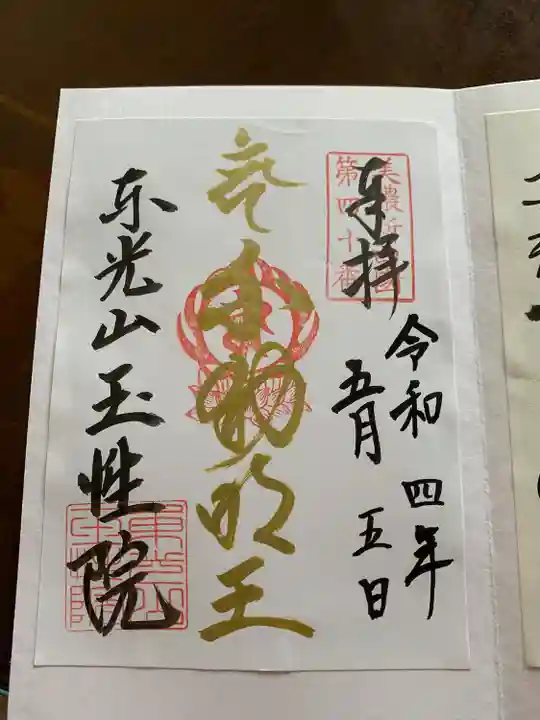 奉拝
美濃新四国
第四十番
令和四年
五月五日
不動明王
东光山玉性院
東光山
玉性院